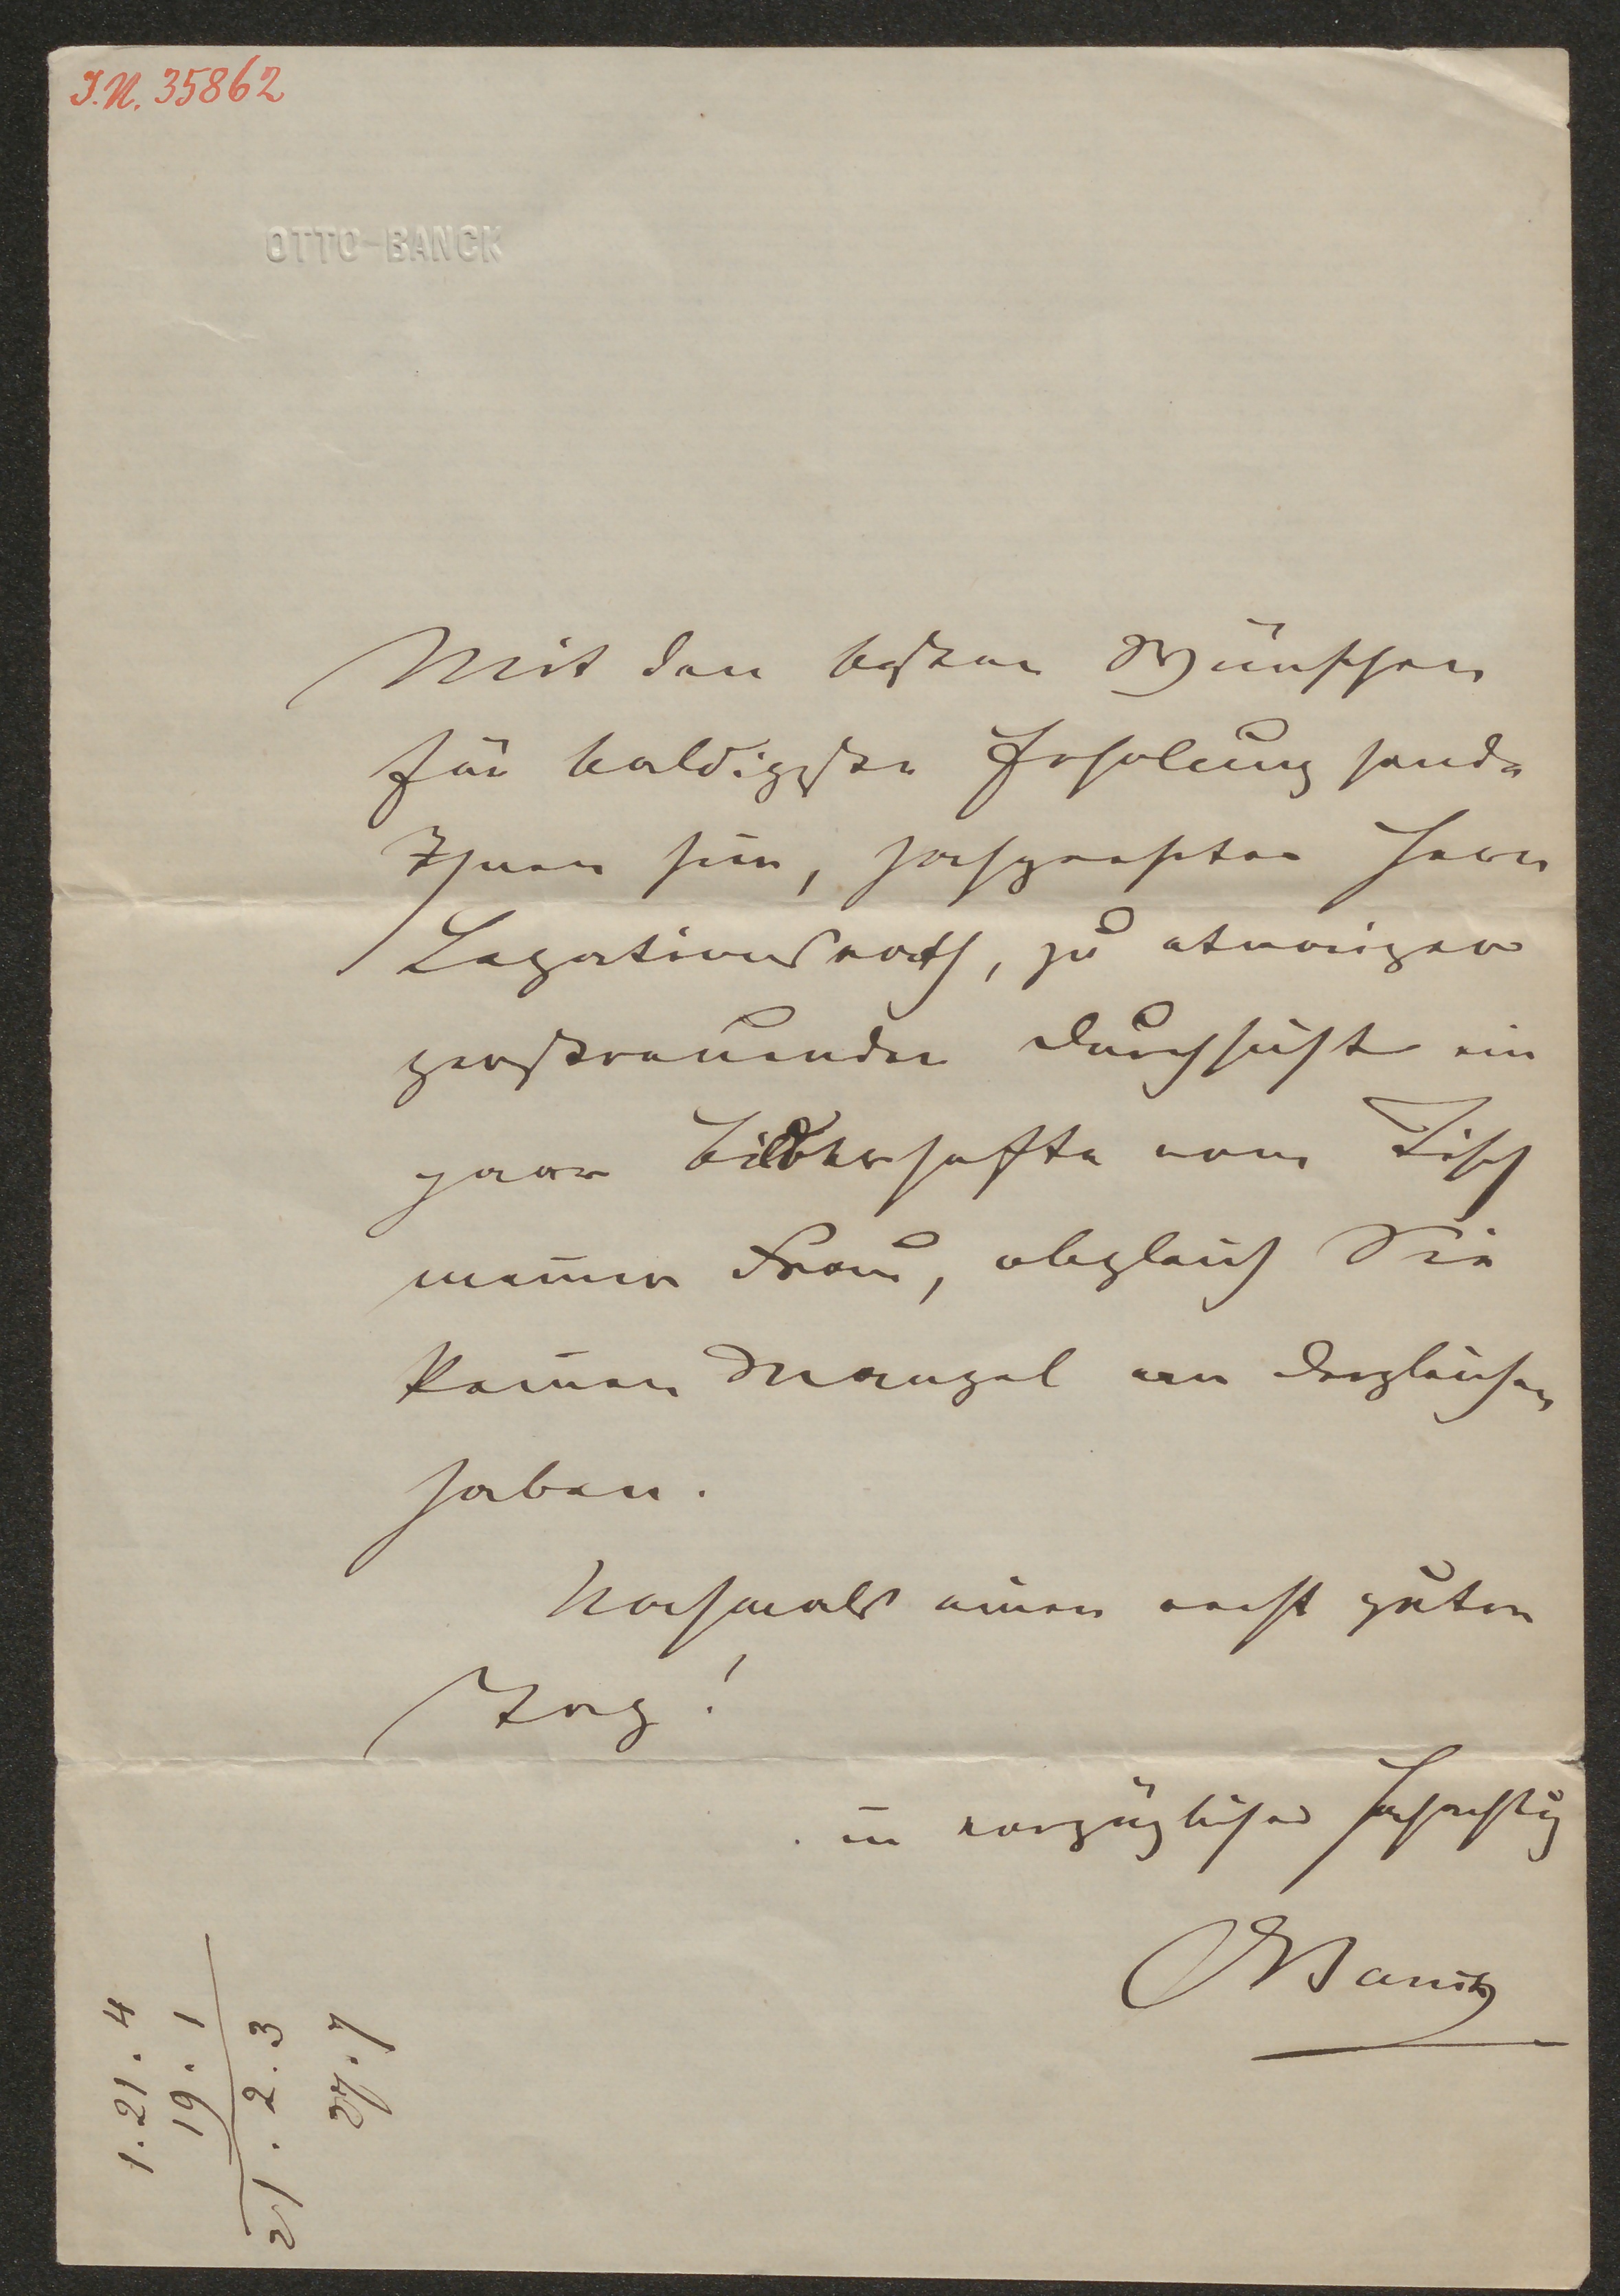 I.N. 35862
OTTO-BANCK
Mit den besten Wünschen
für baldigste Erholung sende
Ihnen hier, hochgeehrter Herr
Legationsrath, zu etwaiger
zerstreuender Durchsicht ein
paar Bilderhefte vom Tisch
meiner Frau, obgleich Sie
keinen Mangel an dergleichen
haben.
Nochmals einen recht guten
Tag!
in vorzüglicher Hochachtung
OBanck
1.21.4
19.1
21.2.3
27.7